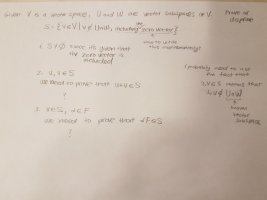 Given V is a vector space, U and W are vector subspaces of V.
Prove or disprove
S = {v∈V | v∉U∩W, including zero vector}
1. S≠∅ since its given that the zero vector is included
how to write this mathematically?
2. u,v∈S
we need to prove that u+v∈S
?
(probably need to use the fact that
u,v∈S means that
u,v∉ U∩W)
known vector subspace
3. v∈S, α∈F
we need to prove that αv∈S
?